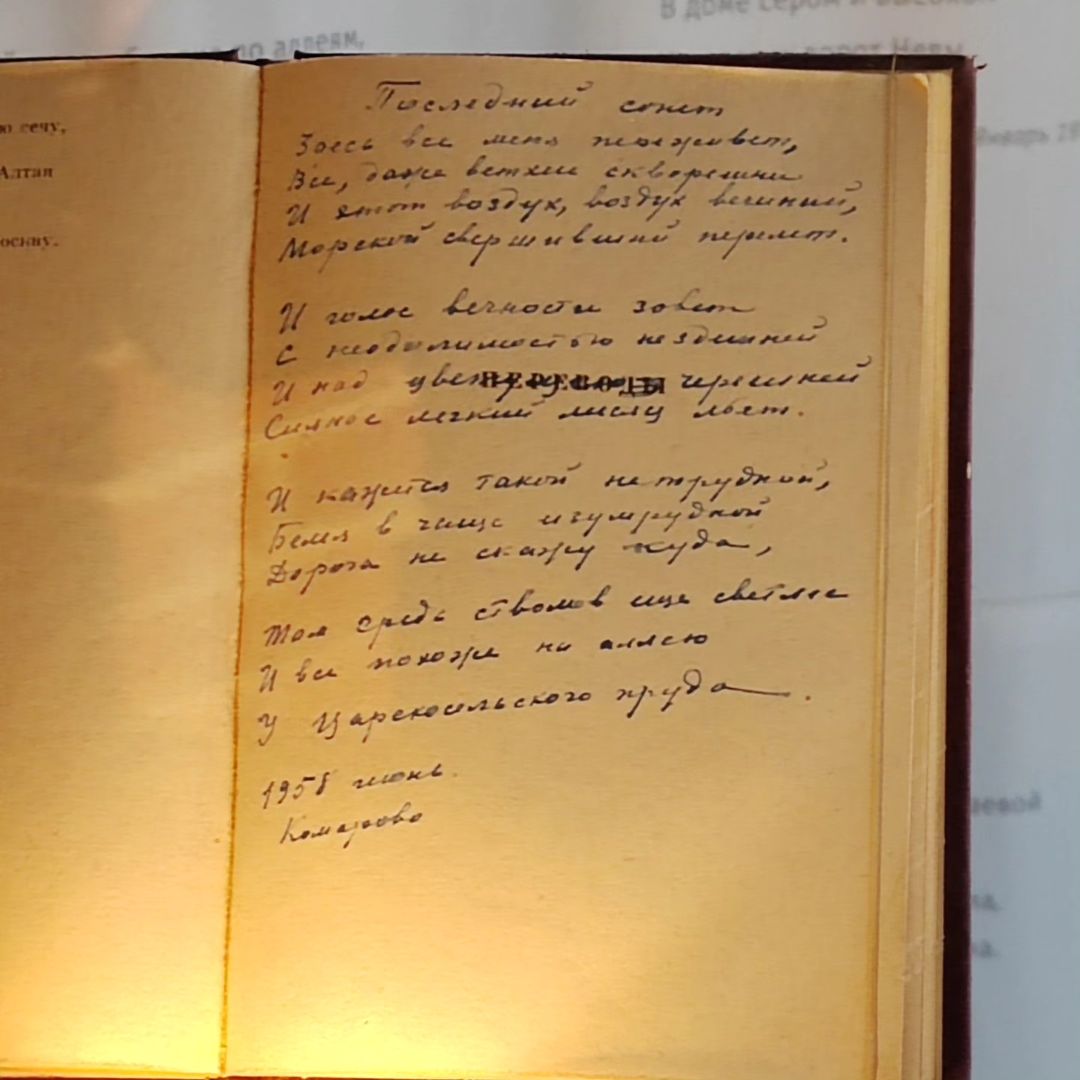 по аллеям,
В доме сером и высоком
ворот Невы
Январь
ю сечу,
Алтая
оскву.
Последний сонет
Здесь все меня переживет,
Все, даже ветхие скворешни
И этот воздух, воздух вешний,
Морской свершивший перелет.
И голос вечности зовет
С неодолимостью нездешней
И над цветущею черешней
ПЕРЕВОДЫ
Сиянье легкий месяц льет.
И кажется такой нетрудной,
Белея в чаще изумрудной
Дорога не скажу куда,
Там средь стволов еще светлее
И все похоже на аллею
У Царскосельского пруда.
1958 июнь.
Комарово